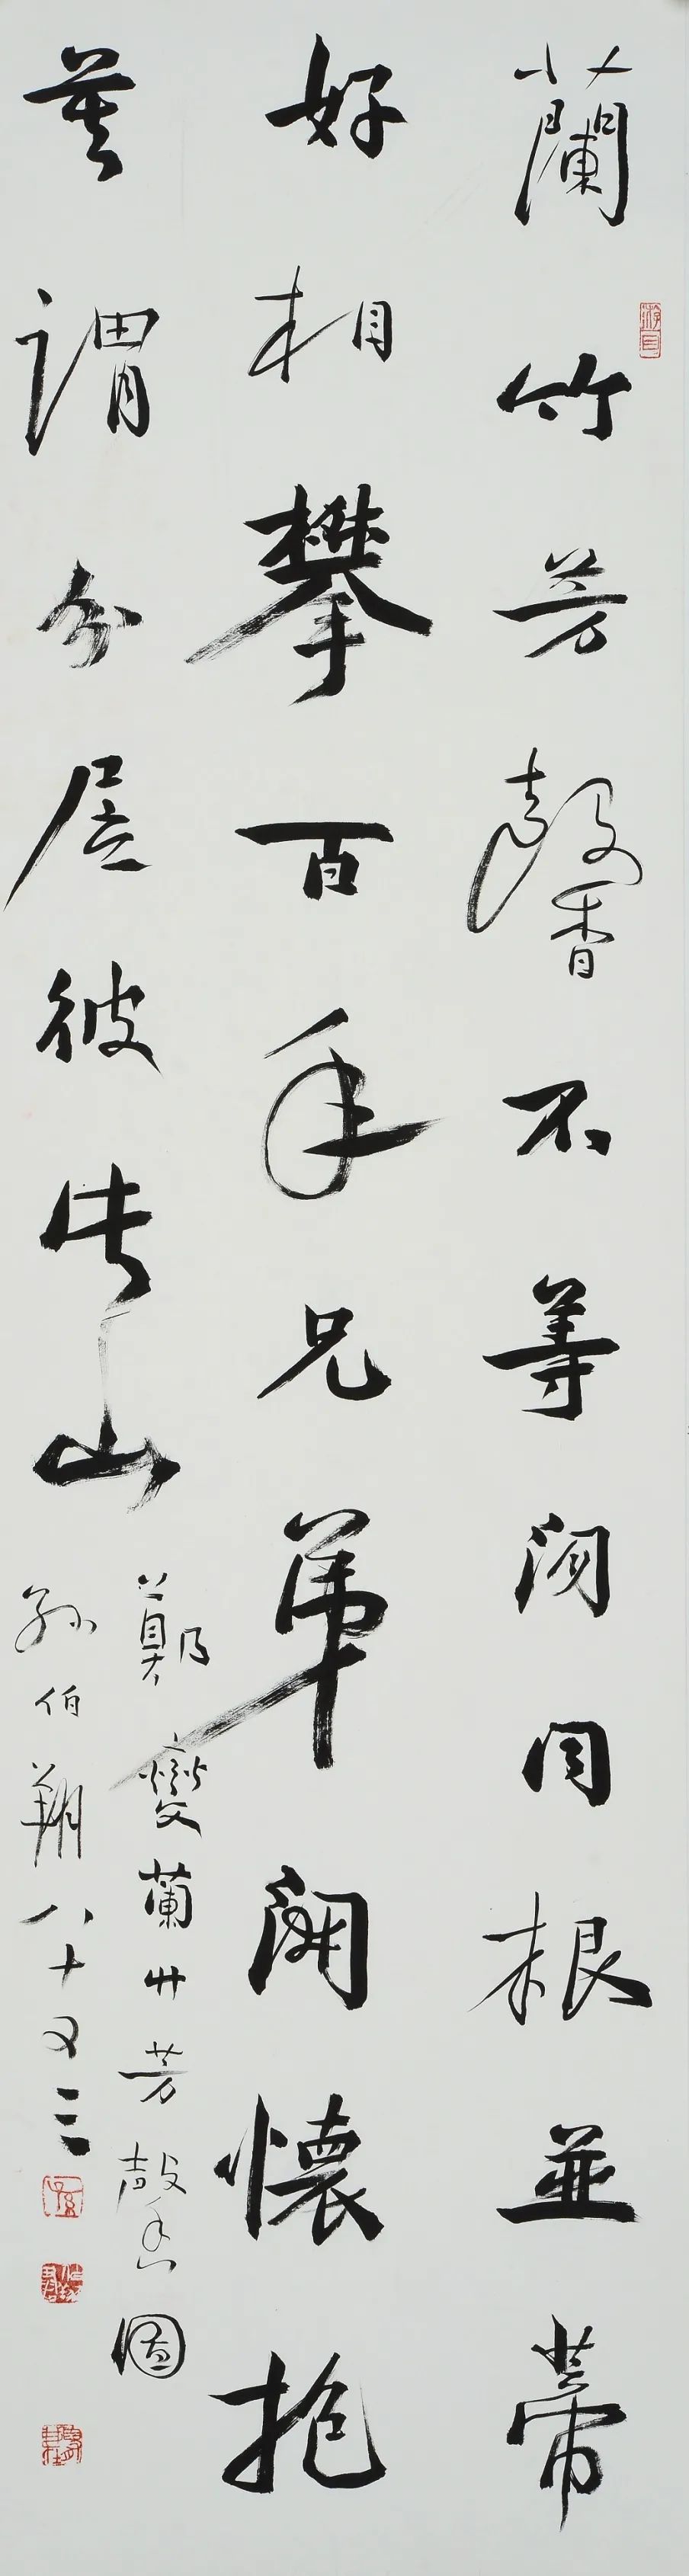 蘭竹芳馨不等閑同根並蒂
游目
好相攀百年兄弟開懷抱
莫謂分居彼此山
鄭燮蘭竹芳馨圖
孫伯翔八十又三